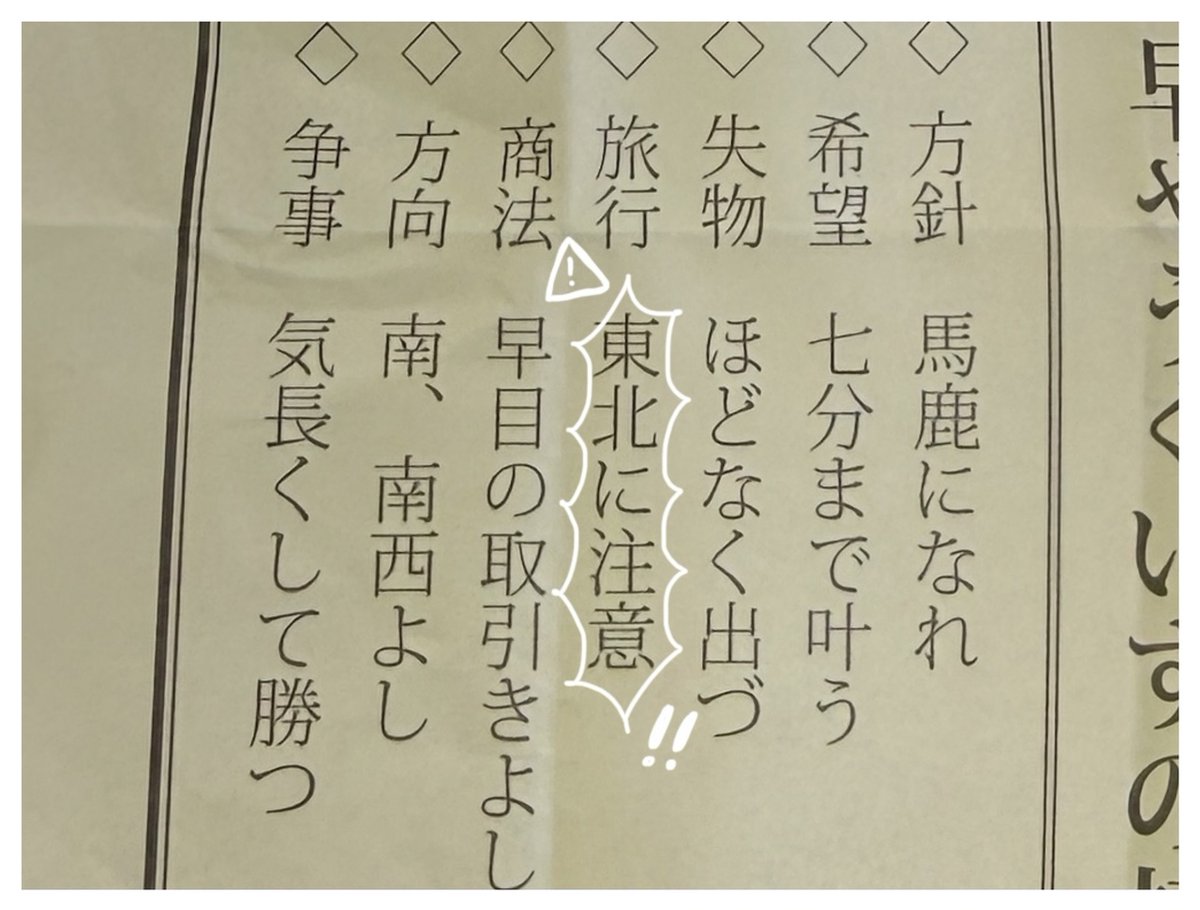 ◇ 方針 馬鹿になれ
◇ 希望 七分まで叶う
◇ 失物 ほどなく出づ
◇ 旅行 東北に注意
!
!!
◇ 商法 早目の取引きよし
◇ 方向 南、南西よし
◇ 争事 気長くして勝つ